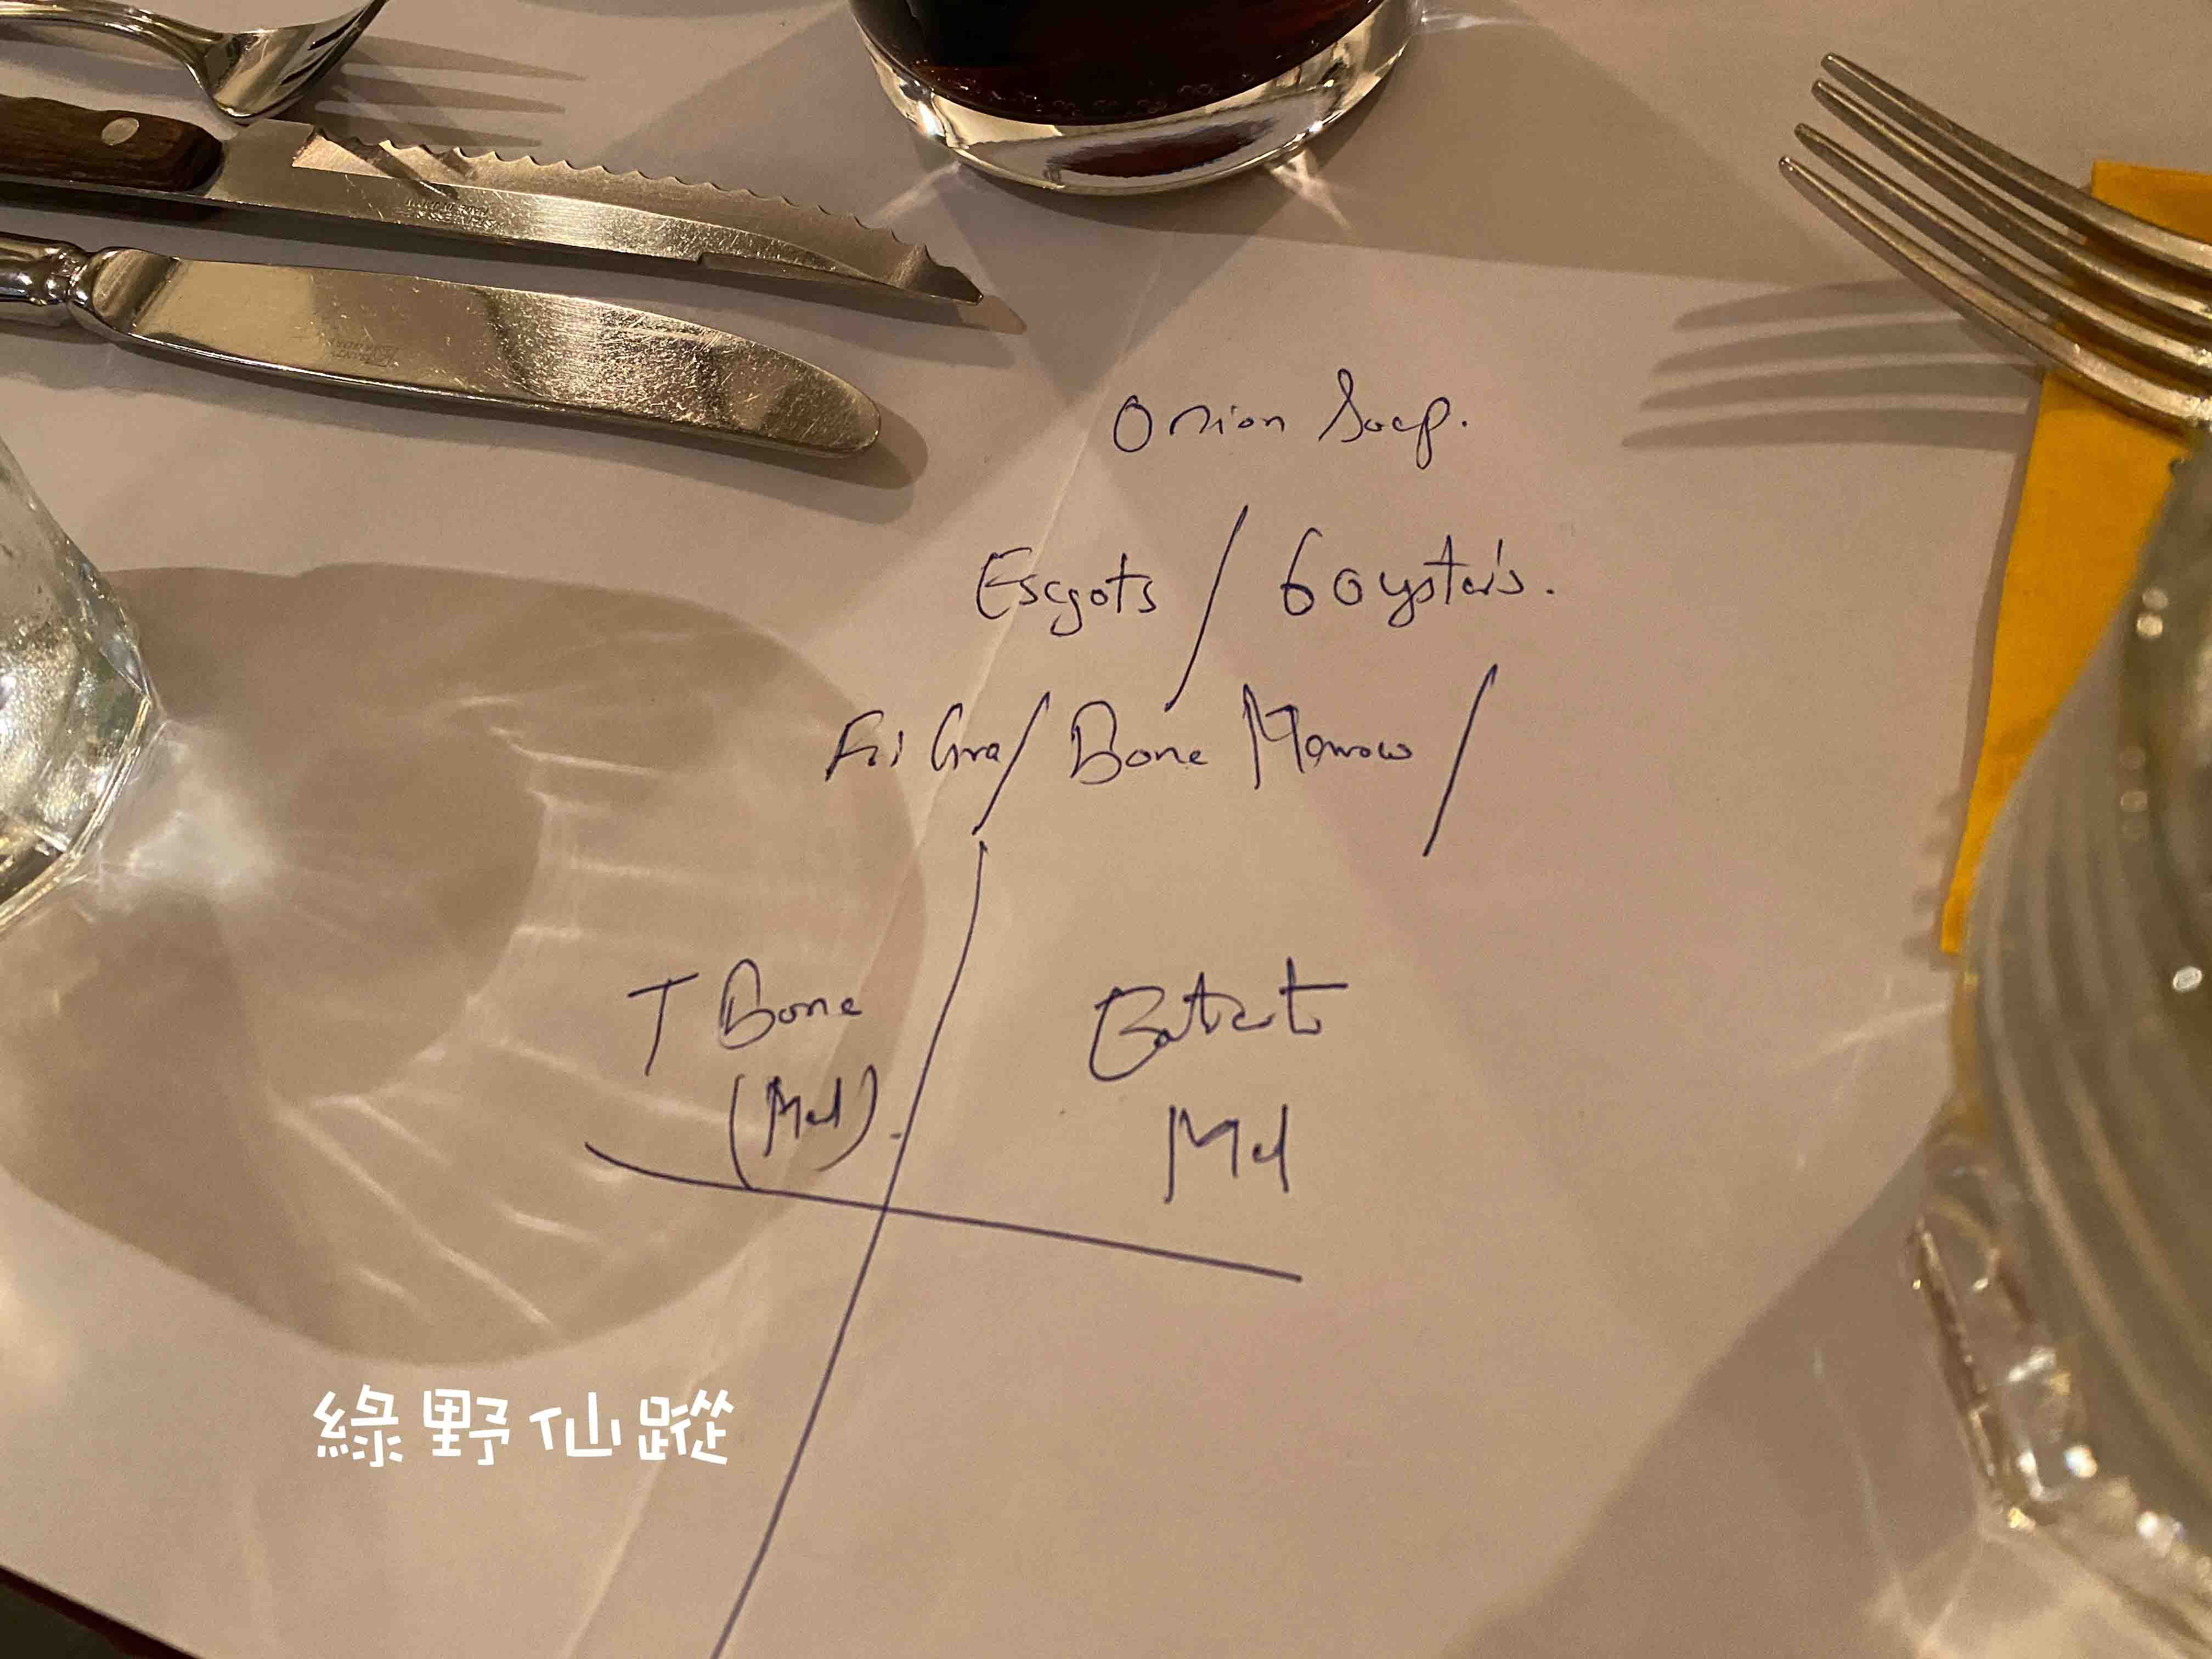 Onion Soup.
Escgots / 6 oysters.
Foi Gra / Bone Marrow /
T Bone
(Med).
Med
綠野仙蹤